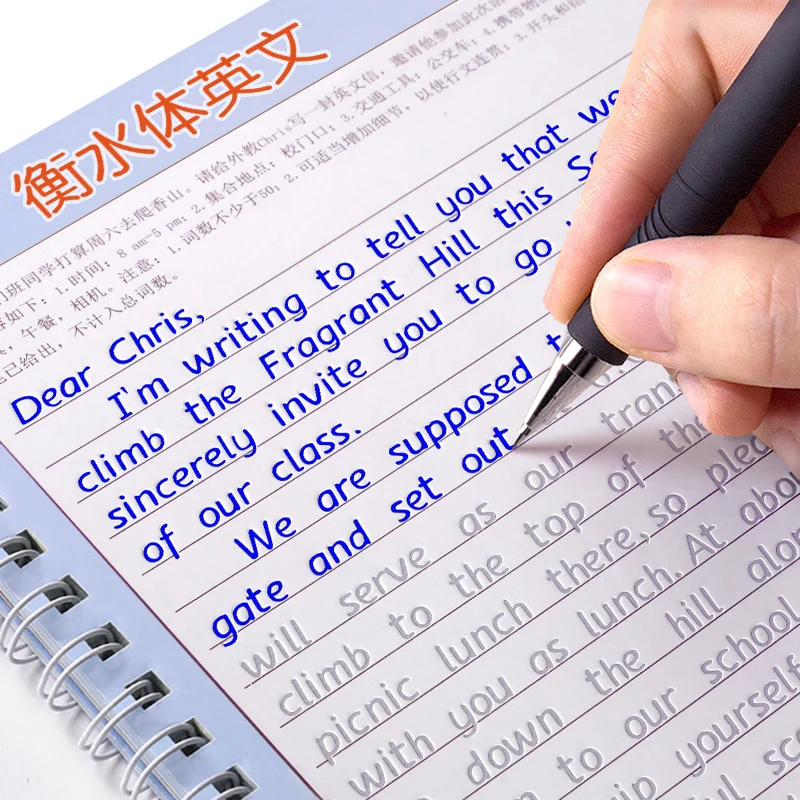 衡水体英文
们班同学打算周六去爬香山。请给外教Chris写一封英文信，邀请他参加此次活
如下：1.时间：8 am-5 pm；2.集合地点：校门口；3.交通工具：公交车；4.携带物
，午餐，相机。注意：1.词数不少于50；2.可适当增加细节，以使行文连贯；3.开头和结
已给出，不计入总词数。
Dear Chris,
I'm writing to tell you that we
climb the Fragrant Hill this Sa
sincerely invite you to go
of our class.
We are supposed t
gate and set out
will serve as our trans
climb to the top of the
picnic lunch there, so plea
with you as lunch. At abo
down the hill alon
to our school
yourself